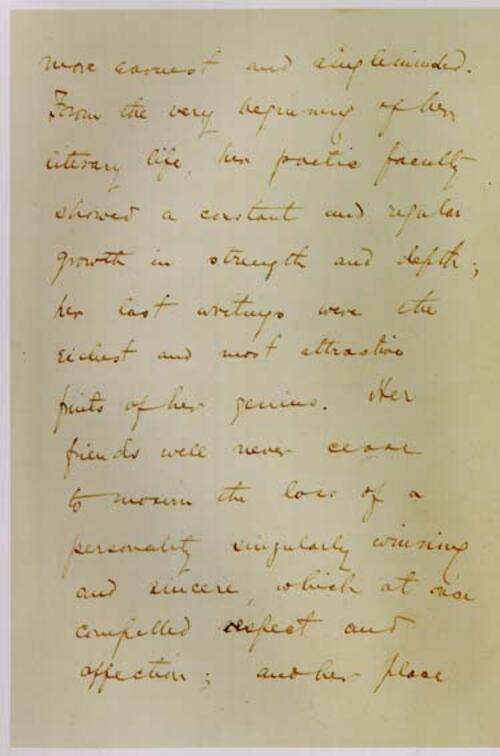 more earnest and singleminded.
From the very beginning of her
literary life, her poetic faculty
showed a constant and regular
growth in strength and depth;
her last writings were the
richest and most attractive
fruits of her genius. Her
friends will never cease
to mourn the loss of a
personality singularly winning
and sincere, which at once
compelled respect and
affection; and her place